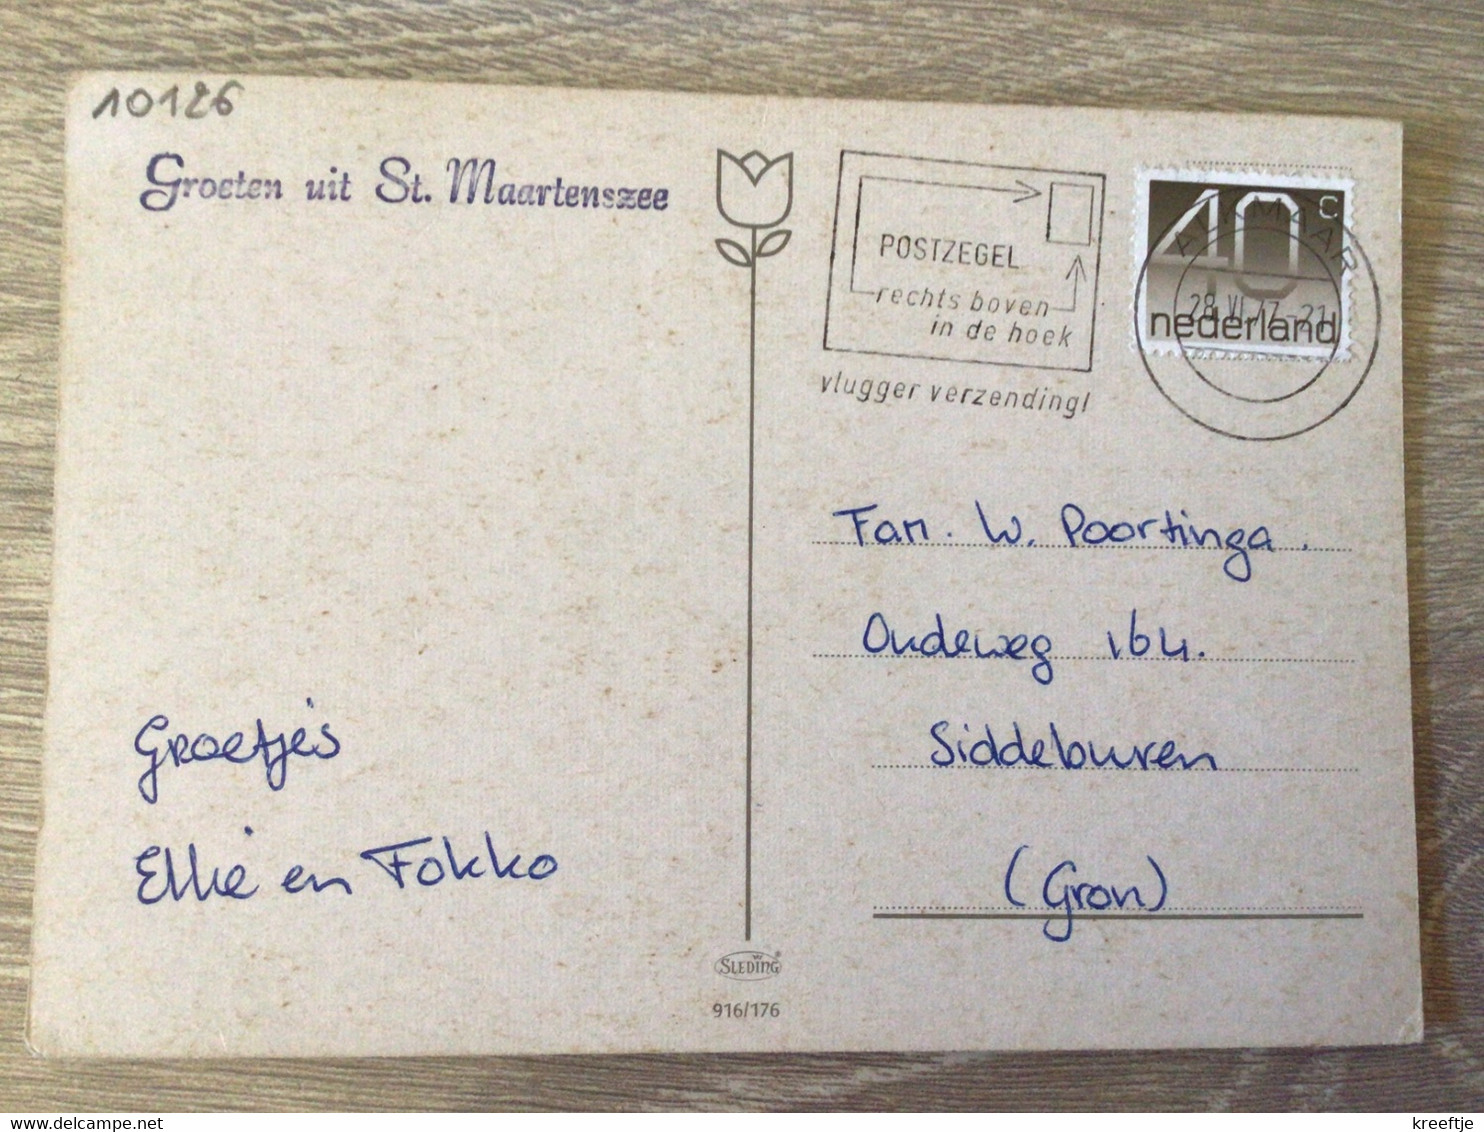 10126
Groeten uit St. Maartenszee
POSTZEGEL
rechts boven
in de hoek
vlugger verzending!
40 c
nederland
ALKMAAR
28.VI.77.-21
Fam. W. Poortinga.
Oudeweg 164.
Siddeburen
(Gron)
Groetjes
Ellie en Fokko
SLEDING®
916/176
www.delcampe.net
kreeftje